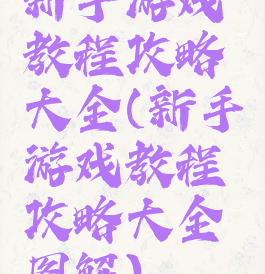 新手游戏
教程攻略
大全(新手
游戏教程
攻略大全
图解)